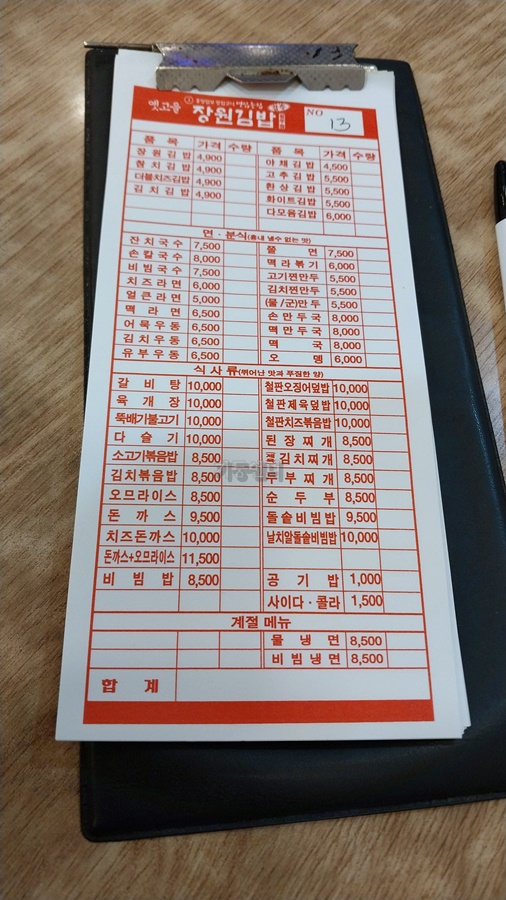 옛고을 장원김밥 NO 13
품 목 가격 수량 품 목 가격 수량
장원김밥 4,900 야채김밥 4,500
참치김밥 4,900 고추김밥 5,500
더블치즈김밥 4,900 환상김밥 5,500
김치김밥 4,900 화이트김밥 5,500
다모음김밥 6,000
면 · 분식(흉내 낼수 없는 맛)
잔치국수 7,500 쫄 면 7,500
손칼국수 8,000 떡라볶기 6,000
비빔국수 7,500 고기찐만두 5,500
치즈라면 6,000 김치찐만두 5,500
얼큰라면 5,000 (물/군)만두 5,500
떡 라 면 6,500 손만두국 8,000
어묵우동 6,500 떡만두국 8,000
김치우동 6,500 떡 국 8,000
유부우동 6,500 오 뎅 6,000
식 사 류(뛰어난 맛과 푸짐한 양)
갈 비 탕 10,000 철판오징어덮밥 10,000
육 개 장 10,000 철판제육덮밥 10,000
뚝배기불고기 10,000 철판치즈볶음밥 10,000
다 슬 기 10,000 된장찌개 8,500
소고기볶음밥 8,500 김치찌개 8,500
김치볶음밥 8,500 두부찌개 8,500
오므라이스 8,500 순 두 부 8,500
돈 까 스 9,500 돌솥비빔밥 9,500
치즈돈까스 10,000 날치알돌솥비빔밥 10,000
돈까스+오므라이스 11,500
비 빔 밥 8,500 공 기 밥 1,000
사이다 · 콜라 1,500
계절 메뉴
물 냉 면 8,500
비 빔 냉 면 8,500
합 계